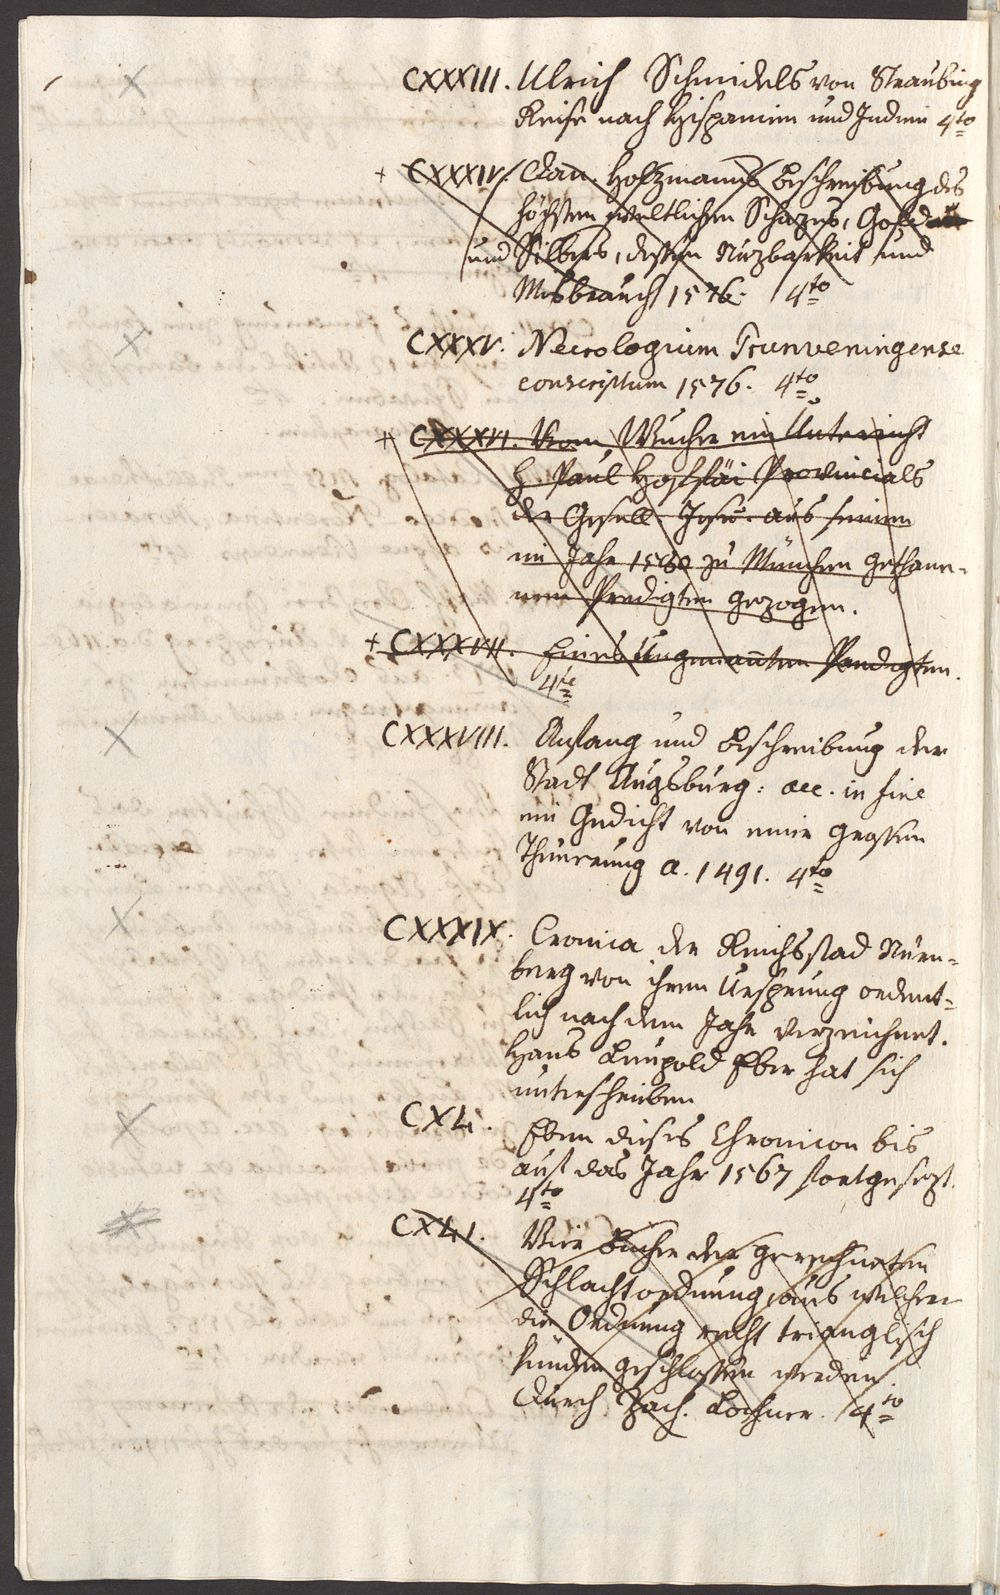 CXXXIII. Ulrich Schmidels von Straubing
Reise nach Hispanien und Indien 4to
+ CXXXIV. Dan. Holzmanns Beschreibung des
höchsten weltlichen Schazes, Gold
und Silbers, dessen Nuzbarkeit und
Misbrauch 1576. 4to
CXXXV. Necrologium Prunveningense
conscriptum 1576. 4to
+ CXXXVI. Vom Wucher ein Unterricht
H. Paul Hoffäi Provincials
der Gesell. Jesu. aus seinen
im Jahr 1580 zu München gethane-
nen Predigten gezogen.
+ CXXXVII. Eines Ungenanten Predigten.
4to
CXXXVIII. Anfang und Beschreibung der
Stadt Augsburg: acc. in fine
ein Gedicht von einer grossen
Theuerung a. 1491. 4to
CXXXIX. Cronica der Reichsstad Nürn-
berg von ihren Ursprung ordent-
lich nach dem Jahr verzeichnet.
Hans Leupold Eber hat sich
unterschrieben
CXL. Eben dieses Chronicon bis
auf das Jahr 1567 fortgesezt.
4to
CXLI. Vier Bücher der gerechneten
Schlachtordnung, aus welcher
die Ordnung recht trianglisch
künden geschlossen werden.
Durch Zach. Lochner. 4to